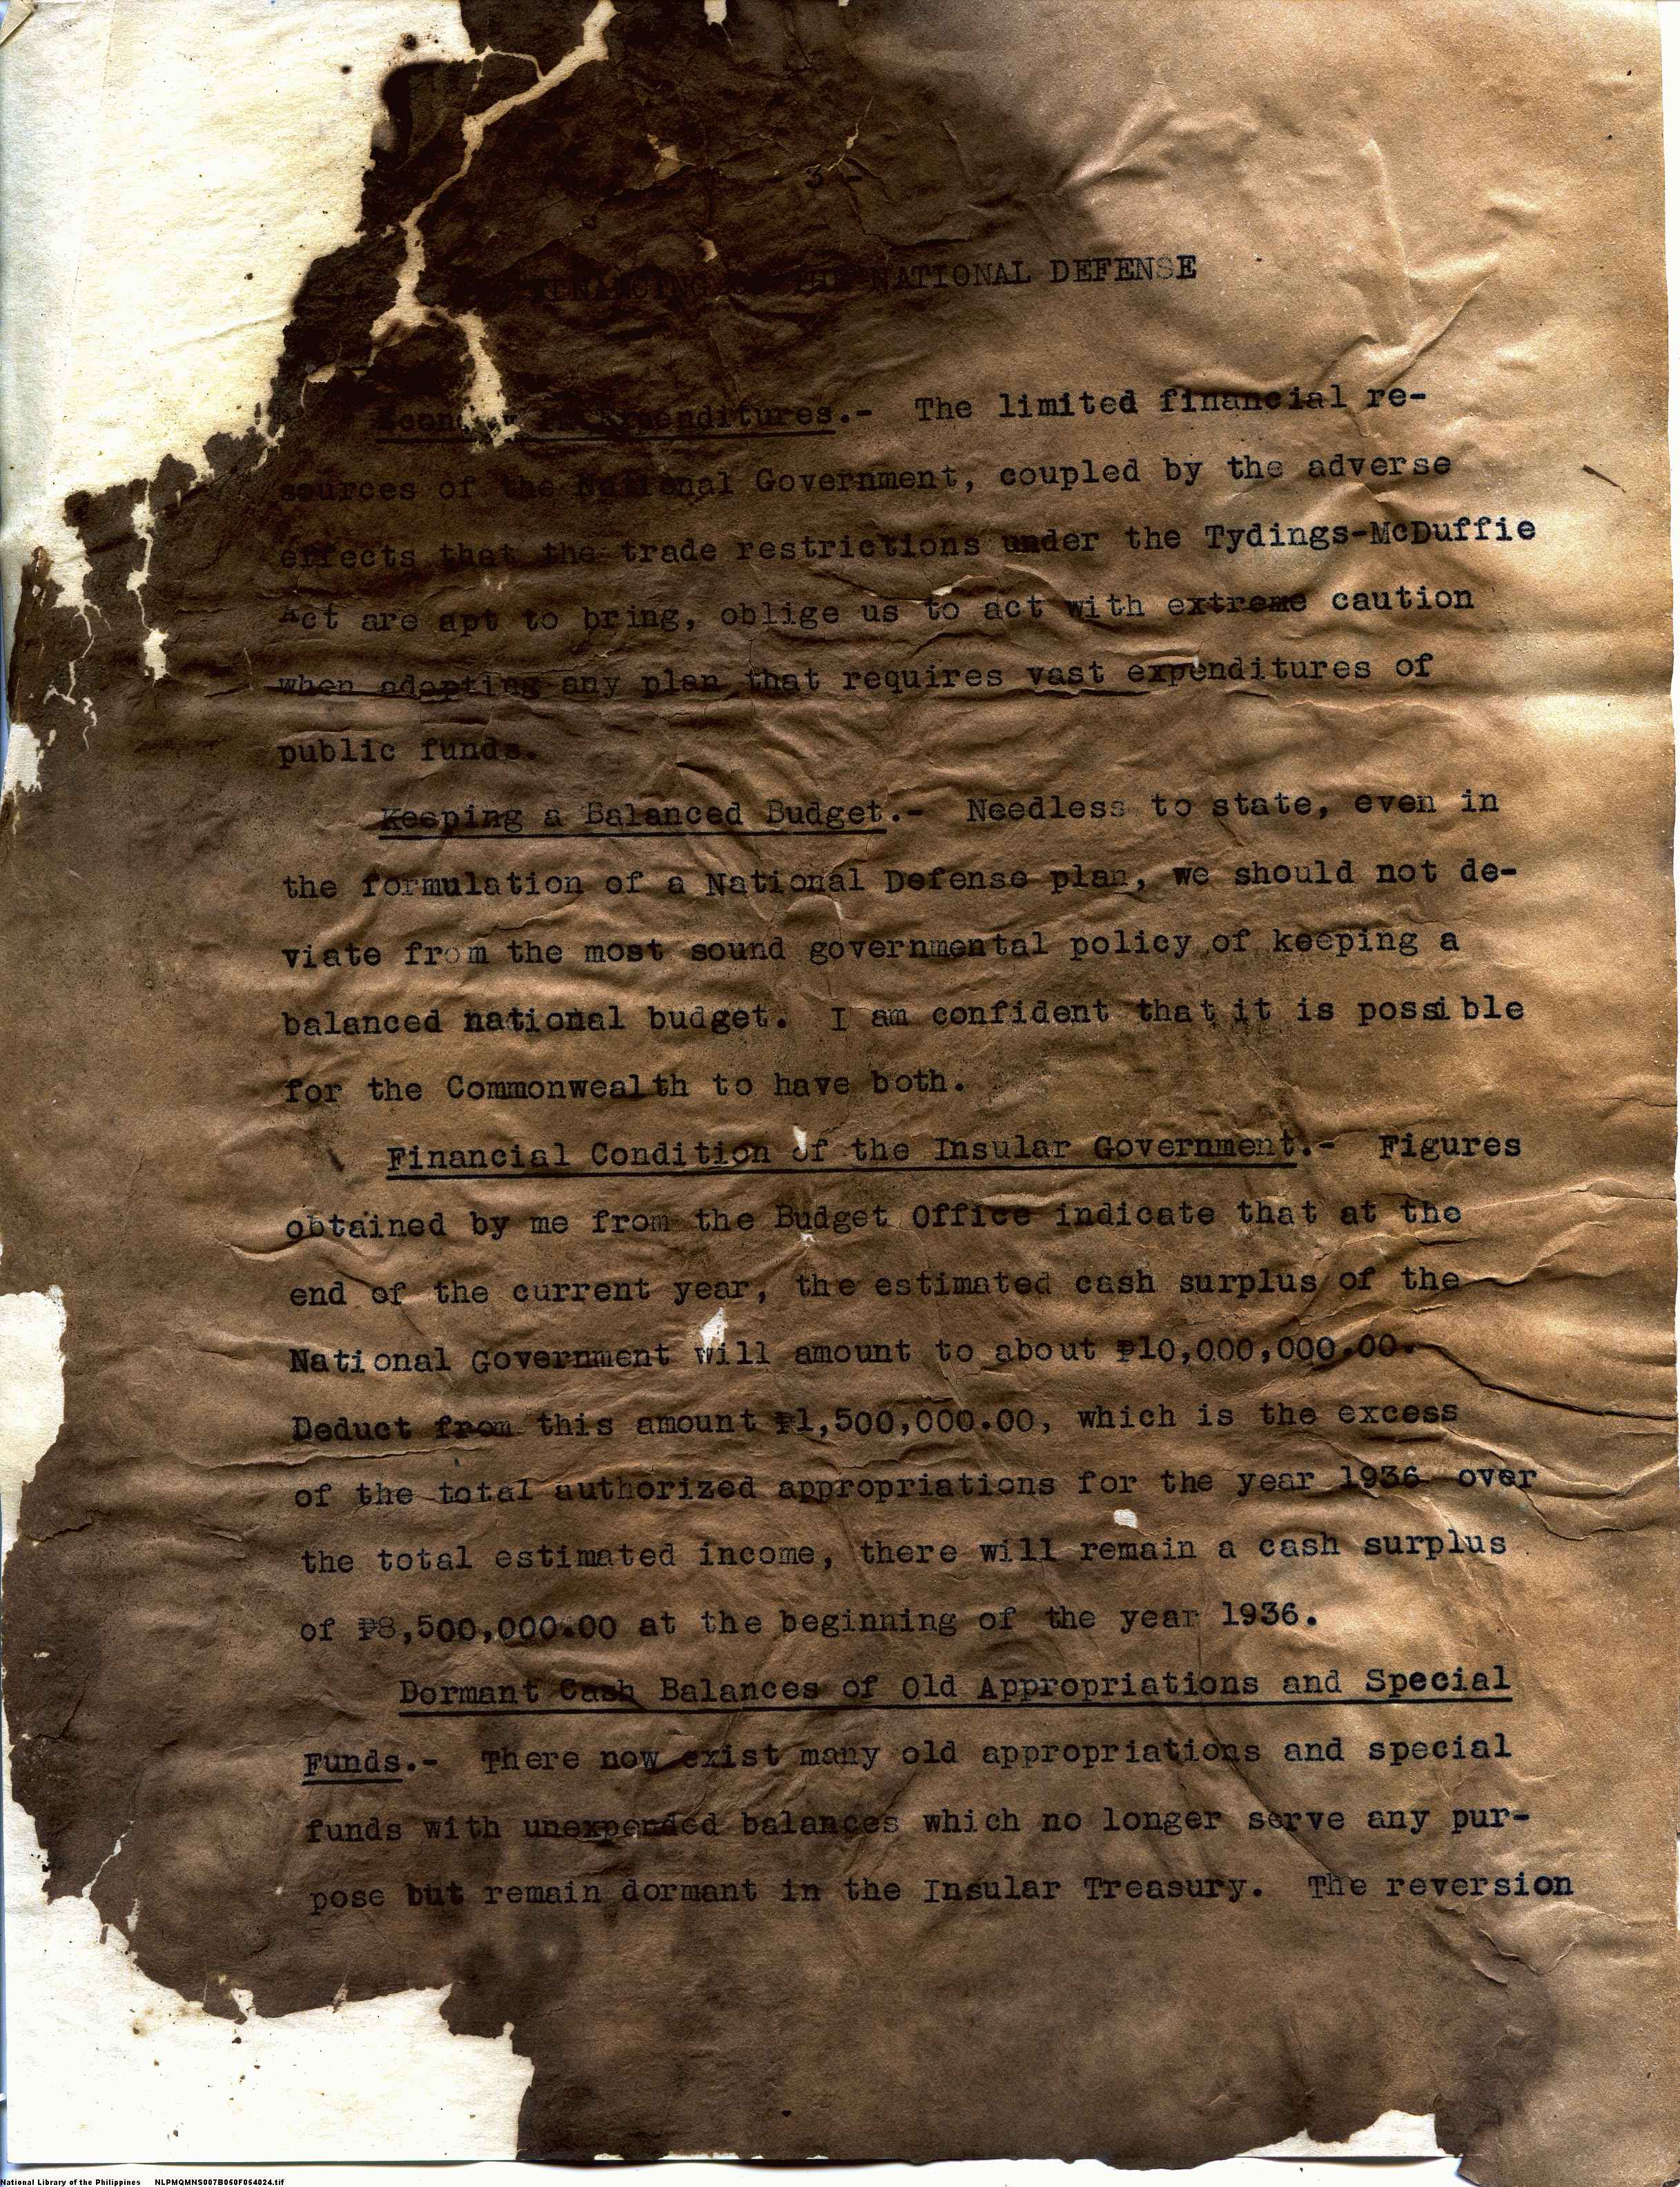 3 -
FINANCING NATIONAL DEFENSE
Economy in Expenditures.- The limited financial re-
sources of the National Government, coupled by the adverse
effects that the trade restrictions under the Tydings-McDuffie
Act are apt to bring, oblige us to act with extreme caution
when adopting any plan that requires vast expenditures of
public funds.
Keeping a Balanced Budget.- Needless to state, even in
the formulation of a National Defense plan, we should not de-
viate from the most sound governmental policy of keeping a
balanced national budget. I am confident that it is possible
for the Commonwealth to have both.
Financial Condition of the Insular Government.- Figures
obtained by me from the Budget Office indicate that at the
end of the current year, the estimated cash surplus of the
National Government will amount to about ₱10,000,000.00.
Deduct from this amount ₱1,500,000.00, which is the excess
of the total authorized appropriations for the year 1936 over
the total estimated income, there will remain a cash surplus
of ₱8,500,000.00 at the beginning of the year 1936.
Dormant Cash Balances of Old Appropriations and Special
Funds.- There now exist many old appropriations and special
funds with unexpended balances which no longer serve any pur-
pose but remain dormant in the Insular Treasury. The reversion
National Library of the Philippines NLPMQMNS007B050F054024.tif